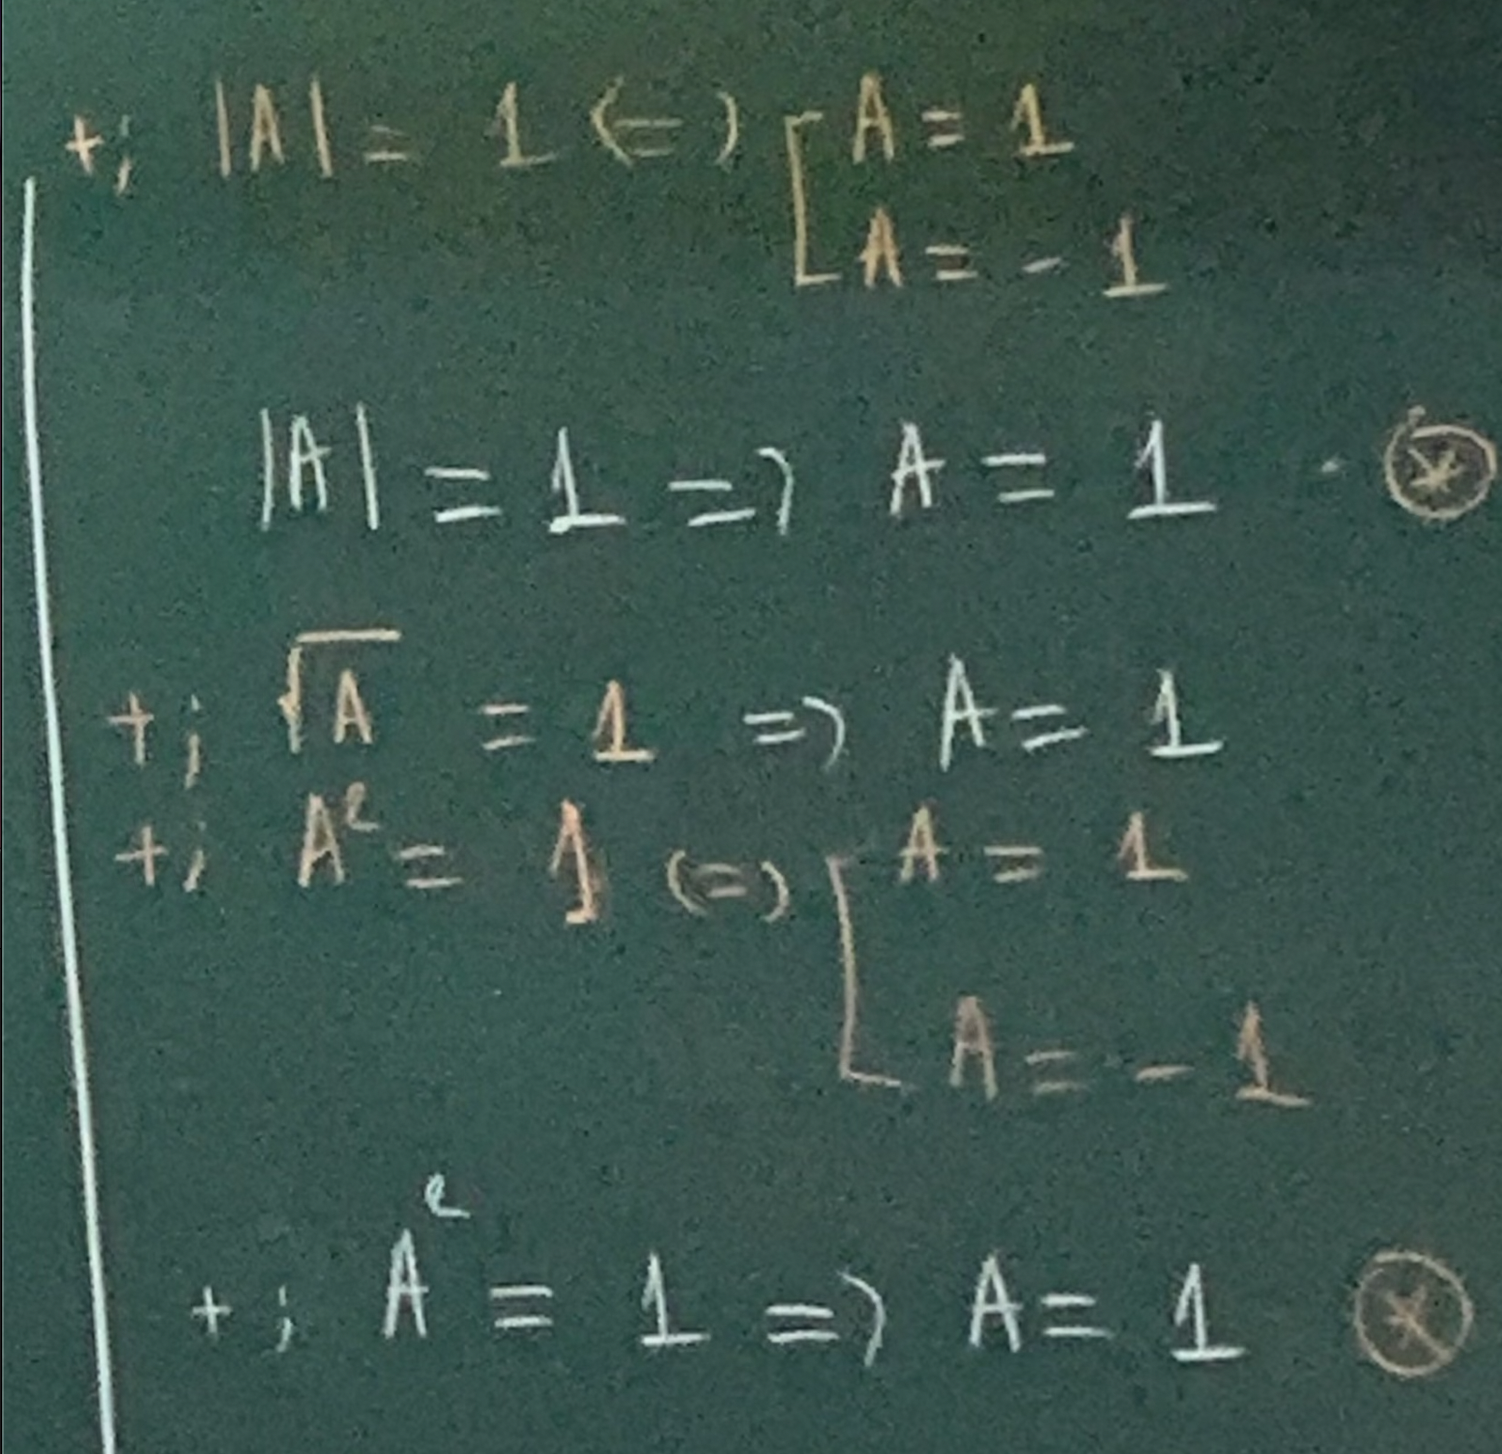 +; |A| = 1 <=> [ A = 1
A = - 1
|A| = 1 => A = 1 . ⊗
+; √A = 1 => A = 1
+; A² = 1 <=> [ A = 1
A = - 1
+; A² = 1 => A = 1 ⊗